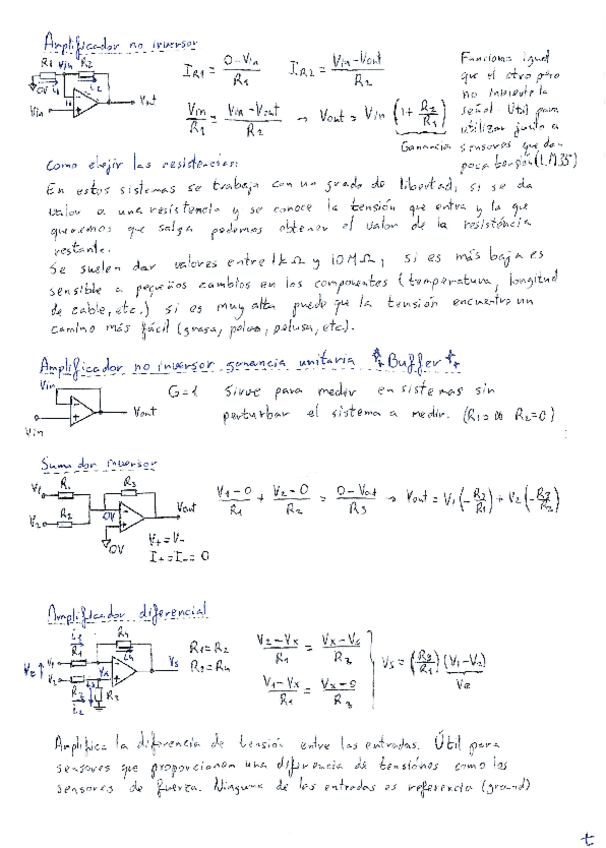 Amplificador no inversor
R1 Vin R2
0V
Vin Vout
I_R1 = (0-Vin)/R1 I_R2 = (Vin-Vout)/R2
Vin/R1 = (Vin-Vout)/R2 → Vout = Vin (1 + R2/R1)
Ganancia
Funciona igual
que el otro pero
no invierte la
señal. Útil para
utilizar junto a
sensores que dan
poca tensión (LM35)
Como elejir las resistencias:
En estos sistemas se trabaja con un grado de libertad, si se da
valor a una resistencia y se conoce la tensión que entra y la que
queremos que salga podemos obtener el valor de la resistencia
restante.
Se suelen dar valores entre 1kΩ y 10MΩ, si es más baja es
sensible a pequeños cambios en los componentes (temperatura, longitud
de cable, etc.) si es muy alta puede que la tensión encuentre un
camino más fácil (grasa, polvo, pelusa, etc).
Amplificador no inversor ganancia unitaria Buffer
Vin
Vin Vout
G=1 Sirve para medir en sistemas sin
perturbar el sistema a medir. (R1=∞ R2=0)
Sumador inversor
V1 R1 R3
V2 R2 0V Vout
0V
V+=V-
I+=I-=0
(V1-0)/R1 + (V2-0)/R2 = (0-Vout)/R3 → Vout = V1(-R3/R1) + V2(-R3/R2)
Amplificador diferencial
R1 R4
V1 Vx Vs
V2
R2 R3
R1=R2
R3=R4
(V2-Vx)/R1 = (Vx-Vs)/R3
(V1-Vx)/R1 = (Vx-0)/R3
Vs = (R3/R1) (V1-V2)
Ve
Amplifica la diferencia de tensión entre las entradas. Útil para
sensores que proporcionan una diferencia de tensiones como los
sensores de fuerza. Ninguna de las entradas es referencia (ground)
t